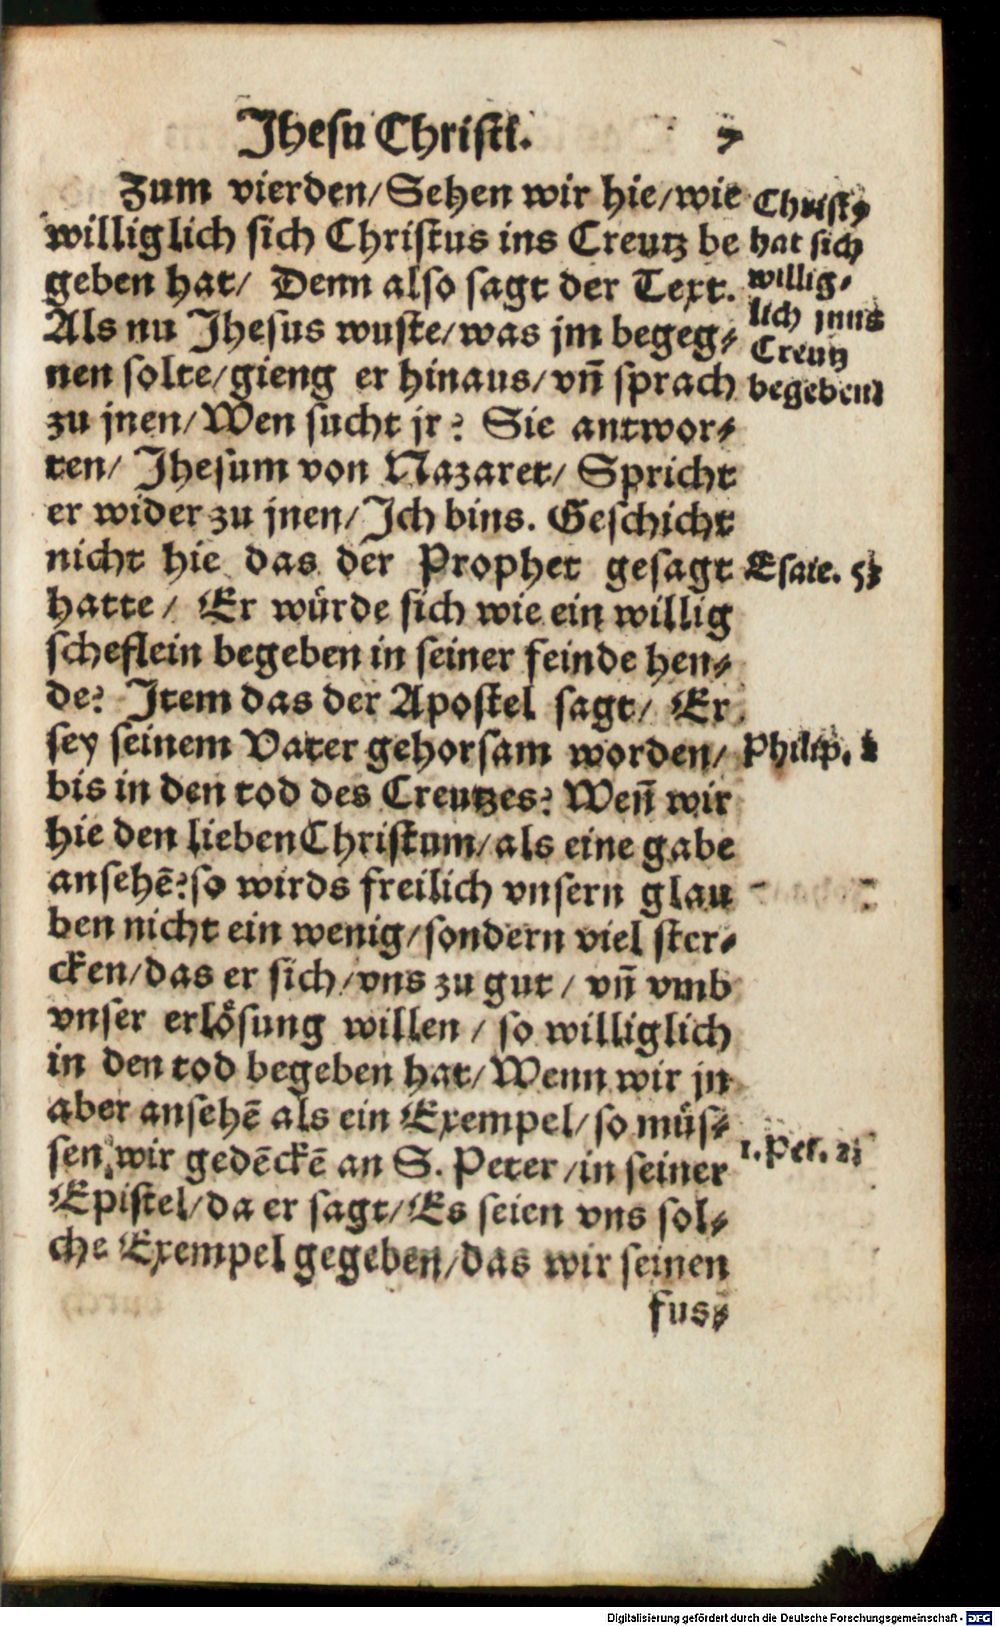 Jhesu Christi. 7
Zum vierden/Sehen wir hie/wie
williglich sich Christus ins Creutz be
geben hat/ Denn also sagt der Text.
Als nu Jhesus wuste/was jm begeg-
nen solte/gieng er hinaus/vn̄ sprach
zu jnen/Wen sucht jr? Sie antwor-
ten/ Jhesum von Nazaret/ Spricht
er wider zu jnen/Ich bins. Geschicht
nicht hie das der Prophet gesagt
hatte/ Er würde sich wie ein willig
scheflein begeben in seiner feinde hen-
de? Item das der Apostel sagt/ Er
sey seinem Vater gehorsam worden/
bis in den tod des Creutzes? Weñ wir
hie den lieben Christum/als eine gabe
ansehē?so wirds freilich vnsern glau
ben nicht ein wenig/sondern viel ster-
cken/das er sich/vns zu gut/ vn̄ vmb
vnser erlösung willen/ so williglich
in den tod begeben hat/Wenn wir jn
aber ansehē als ein Exempel/so müs-
sen wir gedēckē an S. Peter/in seiner
Epistel/da er sagt/Es seien vns sol-
che Exempel gegeben/das wir seinen
fus-
Christꝰ
hat sich
willig-
lich jnns
Creutz
begeben
Esaie. 53
Philip. 2
1. Pet. 2
Digitalisierung gefördert durch die Deutsche Forschungsgemeinschaft - DFG